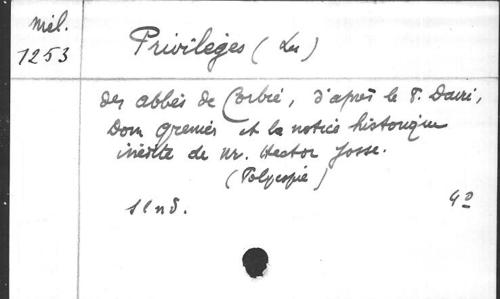 Mél.
1253
Privilèges (Les)
des abbés de Corbie, d'après le P. Daire,
Dom Grenier et la notice historique
inédite de Mr. Hector Josse.
(Polycopié)
S l n d.
4°